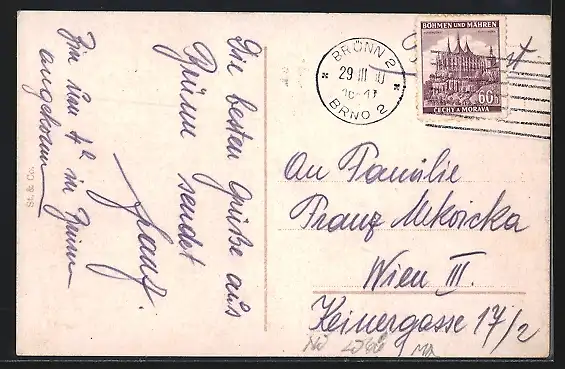 Die besten Grüße aus
Brünn sendet
Franz.
Bin um 4h in Brünn
angekommen
St. & Co.
BRÜNN 2
29 III 0
16-17
BRNO 2
BÖHMEN UND MÄHREN
60
ČECHY A MORAVA
An Familie
Franz Mikoicka
Wien III.
Keinergasse 17/2